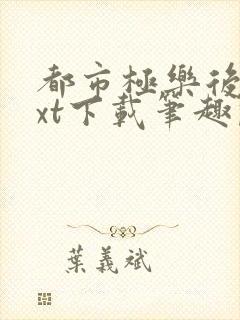 都市極樂後
xt下載筆趣
葉義斌